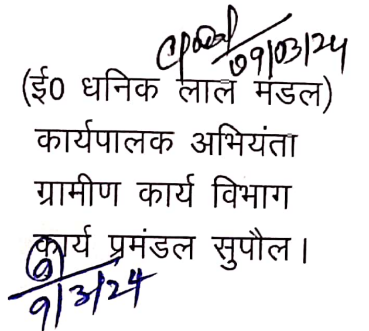 09/03/24
(ई0 धनिक लाल मंडल)
कार्यपालक अभियंता
ग्रामीण कार्य विभाग
कार्य प्रमंडल सुपौल।
9/3/24